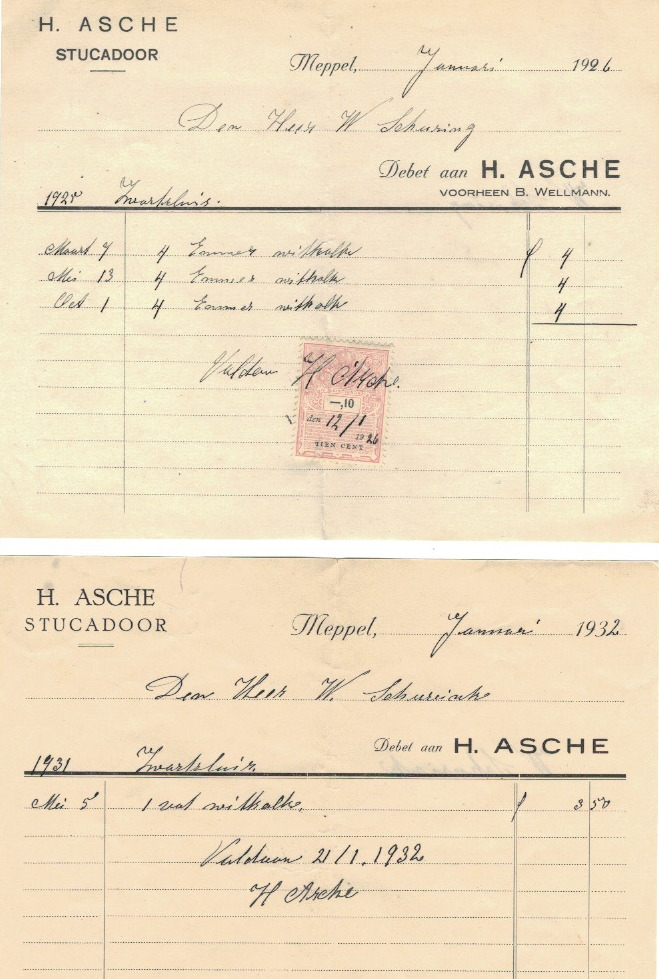 H. ASCHE
STUCADOOR
Meppel, Januari 1926
Den Heer W Schuring
Debet aan H. ASCHE
VOORHEEN B. WELLMANN.
1925 Zwartsluis.
Maart 7 4 Emmer witkalk f 4
Mei 13 4 Emmer witkalk 4
Oct 1 4 Emmer witkalk 4
Voldaan H Asche.
—,10
den 12/1
1926
TIEN CENT
H. ASCHE
STUCADOOR
Meppel, Januari 1932
Den Heer W.
Debet aan H. ASCHE
1931 Zwartsluis.
Mei 5 1 vat witkalk. f 3 50
Voldaan 21/1.1932
H Asche